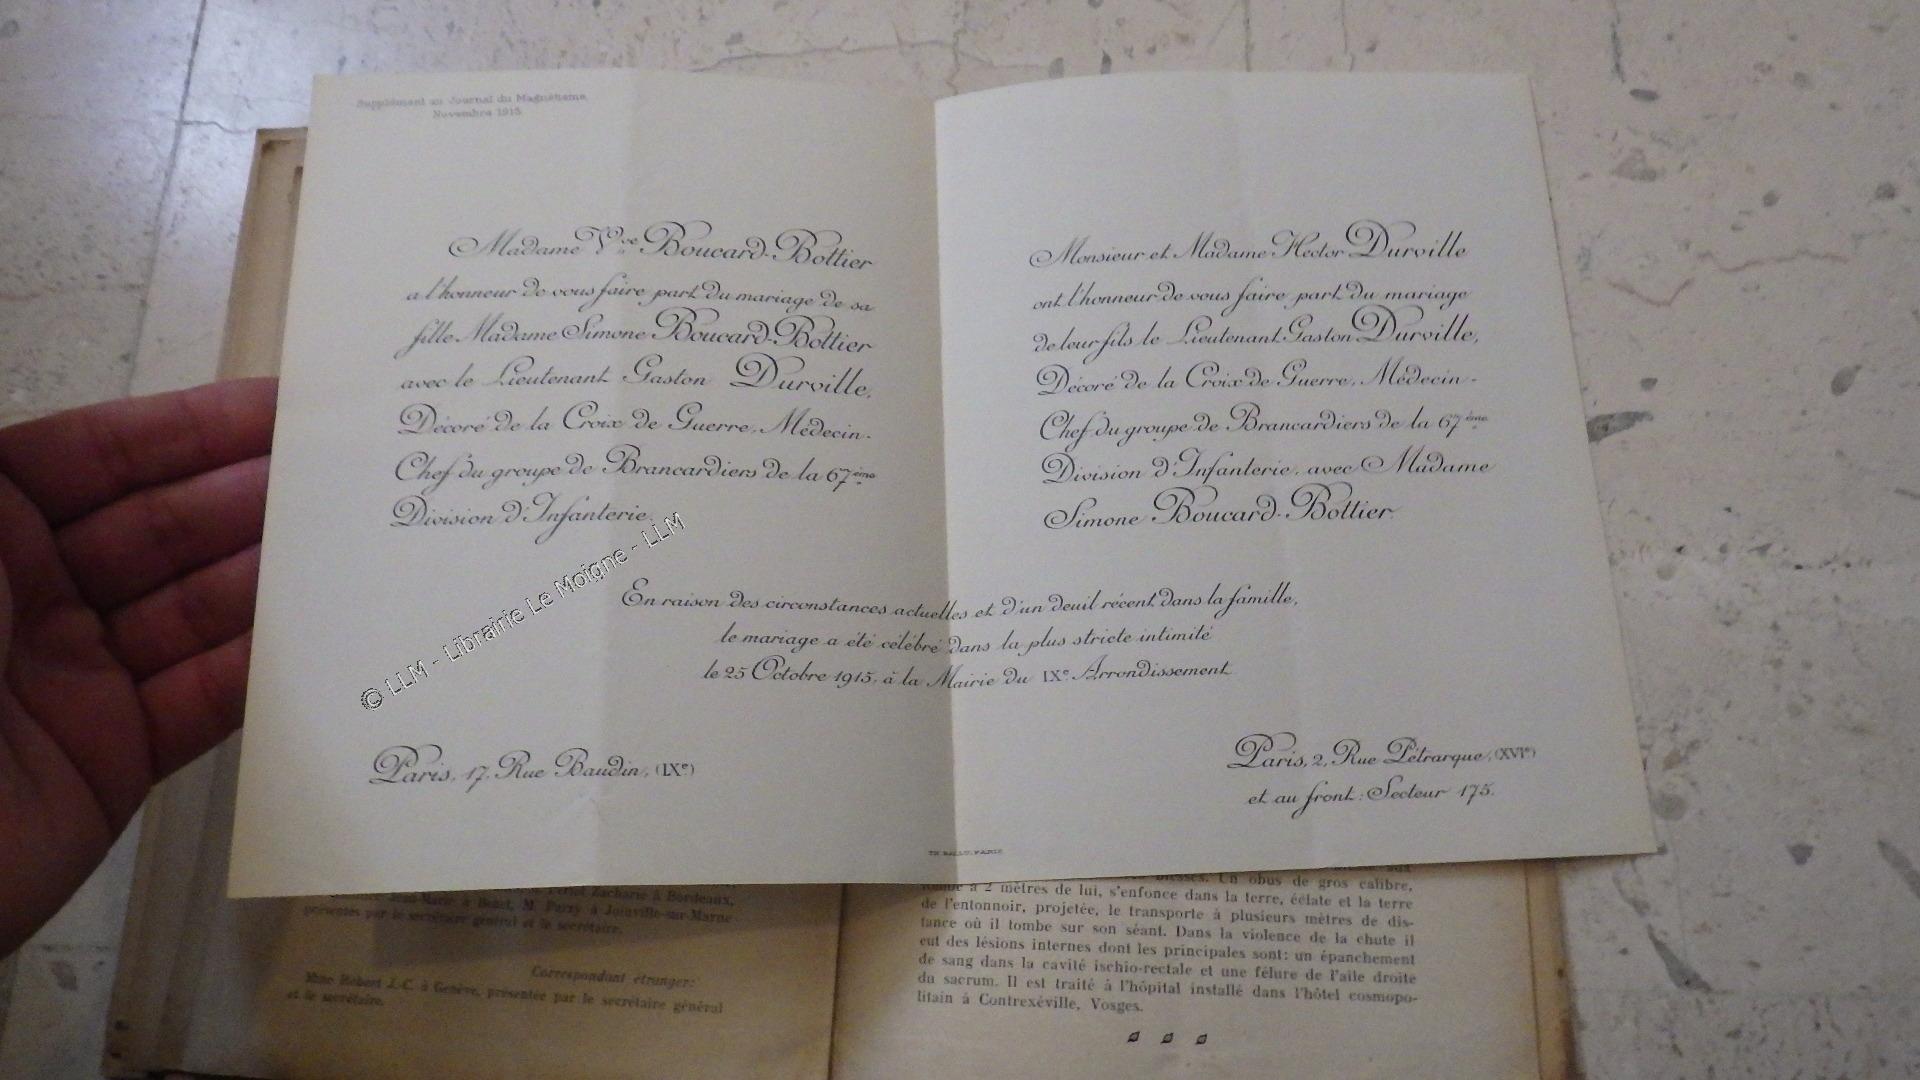 Supplément au Journal du Magnétisme,
Novembre 1915
Madame Vve Boucard-Bottier
a l'honneur de vous faire part du mariage de sa
fille Madame Simone Boucard-Bottier
avec le Lieutenant Gaston Durville,
Décoré de la Croix de Guerre, Médecin-
Chef du groupe de Brancardiers de la 67ème
Division d'Infanterie.
Monsieur et Madame Hector Durville
ont l'honneur de vous faire part du mariage
de leur fils le Lieutenant Gaston Durville,
Décoré de la Croix de Guerre, Médecin-
Chef du groupe de Brancardiers de la 67ème
Division d'Infanterie, avec Madame
Simone Boucard-Bottier.
En raison des circonstances actuelles et d'un deuil récent dans la famille,
le mariage a été célébré dans la plus stricte intimité
le 25 Octobre 1915, à la Mairie du IXe Arrondissement
Paris, 17, Rue Baudin, (IXe)
Paris, 2, Rue Pétrarque, (XVIe)
et au front : Secteur 175.
© LLM - Librairie Le Moigne - LLM
Zacharie à Bordeaux,
Jean-Marie à Benet, M. Parzy à Joinville-sur-Marne
présentés par le secrétaire général et le secrétaire.
Correspondant étranger:
Mme Robert J.-C. à Genève, présentée par le secrétaire général
et le secrétaire.
blessés. Un obus de gros calibre,
tombe à 2 mètres de lui, s'enfonce dans la terre, éclate et la terre
de l'entonnoir, projetée, le transporte à plusieurs mètres de dis-
tance où il tombe sur son séant. Dans la violence de la chute il
eut des lésions internes dont les principales sont: un épanchement
de sang dans la cavité ischio-rectale et une fêlure de l'aile droite
du sacrum. Il est traité à l'hôpital installé dans l'hôtel cosmopo-
litain à Contrexéville, Vosges.